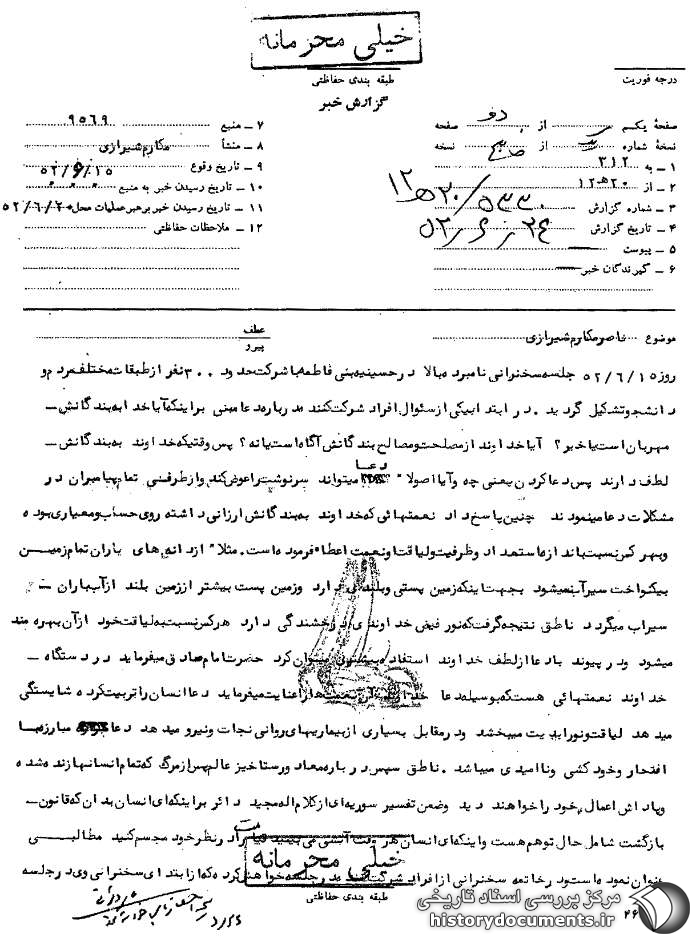 خیلی محرمانه
طبقه بندی حفاظتی
گزارش خبر
درجه فوریت
صفحهٔ یکم از دو صفحه
نسخهٔ شماره از نسخه
۱ ــ به ۳۱۲
۲ ــ از ۲۰هـ۱۲
۳ ــ شماره گزارش ۵۳۳۰/۲۰هـ۱۲
۴ ــ تاریخ گزارش ۵۲/۶/۲۴
۵ ــ پیوست
۶ ــ گیرندگان خبر
۷ ــ منبع ۹۵۶۹
۸ ــ منشأ مکارم شیرازی
۹ ــ تاریخ وقوع ۵۲/۶/۱۵
۱۰ ــ تاریخ رسیدن خبر به منبع
۱۱ ــ تاریخ رسیدن خبر برهبر عملیات محل ۵۲/۶/۲۰
۱۲ ــ ملاحظات حفاظتی
موضوع ناصر مکارم شیرازی
عطف
پیرو
روز ۵۲/۶/۱۵ جلسه سخنرانی نامبرده بالا در حسینیه بنی فاطمه با شرکت حدود ۳۰۰ نفر از طبقات مختلف مردم و
دانشجو تشکیل گردید . در ابتدا بیکی از سئوال افراد شرکت کننده درباره دعا مبنی براینکه آیا خدا به بندگانش ــ
مهربان است یا خیر؟ آیا خداوند از مصلحت و مصالح بندگانش آگاه است یا نه؟ پس وقتیکه خداوند به بندگانش ــ
لطف دارند پس دعا کردن یعنی چه و آیا اصولا" دعا میتواند سرنوشت را عوض کند و از طرفی تمام پیامبران در
مشکلات دعا مینمودند چنین پاسخ داد نعمتهائی که خداوند به بندگانش ارزانی داشته روی حساب و معیاری بوده
و بهر کس نسبت باندازه استعداد و ظرفیت و لیاقت او نعمت اعطاء فرموده است . مثلا" از دانه های باران تمام زمین
یکنواخت سیرآب نمیشود بجهت اینکه زمین پستی و بلندی دارد و زمین پست بیشتر از زمین بلند از آب باران ــ
سیراب میگردد ناطق نتیجه گرفت که نور فیض خداوندی درخشندگی دارد هر کس نسبت به لیاقت خود از آن بهره مند
میشود و در پیوند با دعا از لطف خداوند استفاده بیشتری میتوان کرد حضرت امام صادق میفرماید در دستگاه ــ
خداوند نعمتهائی هست که بوسیله دعا خداوند آن نعمت ها را عنایت میفرماید دعا انسان را تربیت کرده شایستگی
میدهد لیاقت و نور ابدیت میبخشد و در مقابل بسیاری از بیماریهای روانی نجات و نیرو میدهد دعا مبارزه با
افتحار و خودکشی و ناامیدی میباشد . ناطق سپس درباره معاد و رستاخیز عالم پس از مرگ که تمام انسانها زنده شده
و پاداش اعمال خود را خواهند دید و ضمن تفسیر سوره ای از کلام اله مجید دائر براینکه ای انسان بدان که قانون ــ
بازگشت شامل حال تو هم هست و اینکه ای انسان هر وقت آتشی می بینید قیامت را در نظر خود مجسم کنید مطالبی
عنوان نموده است و در خاتمه سخنرانی از افراد شرکت کننده در جلسه خواهش کرده که از ابتدای سخنرانی وی در جلسه
خیلی محرمانه
طبقه بندی حفاظتی
مرکز بررسی اسناد تاریخی
historydocuments.ir